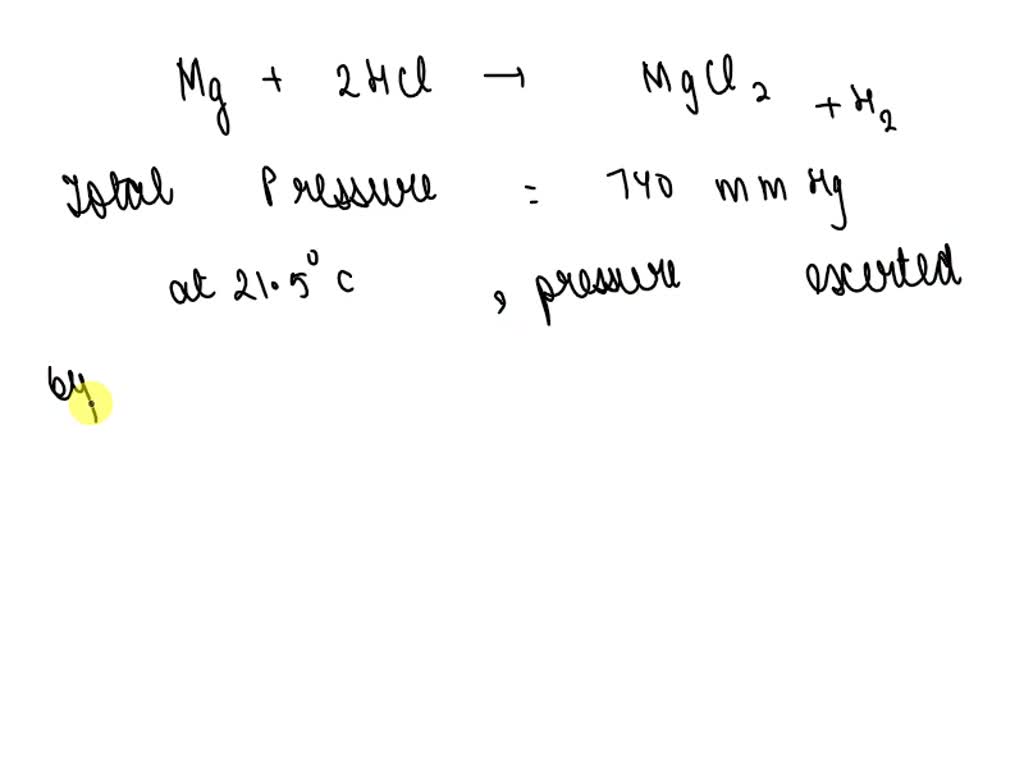 Mg + 2HCl → MgCl2 + H2
Total Pressure = 740 mm Hg
at 21.5° C , pressure exerted
by